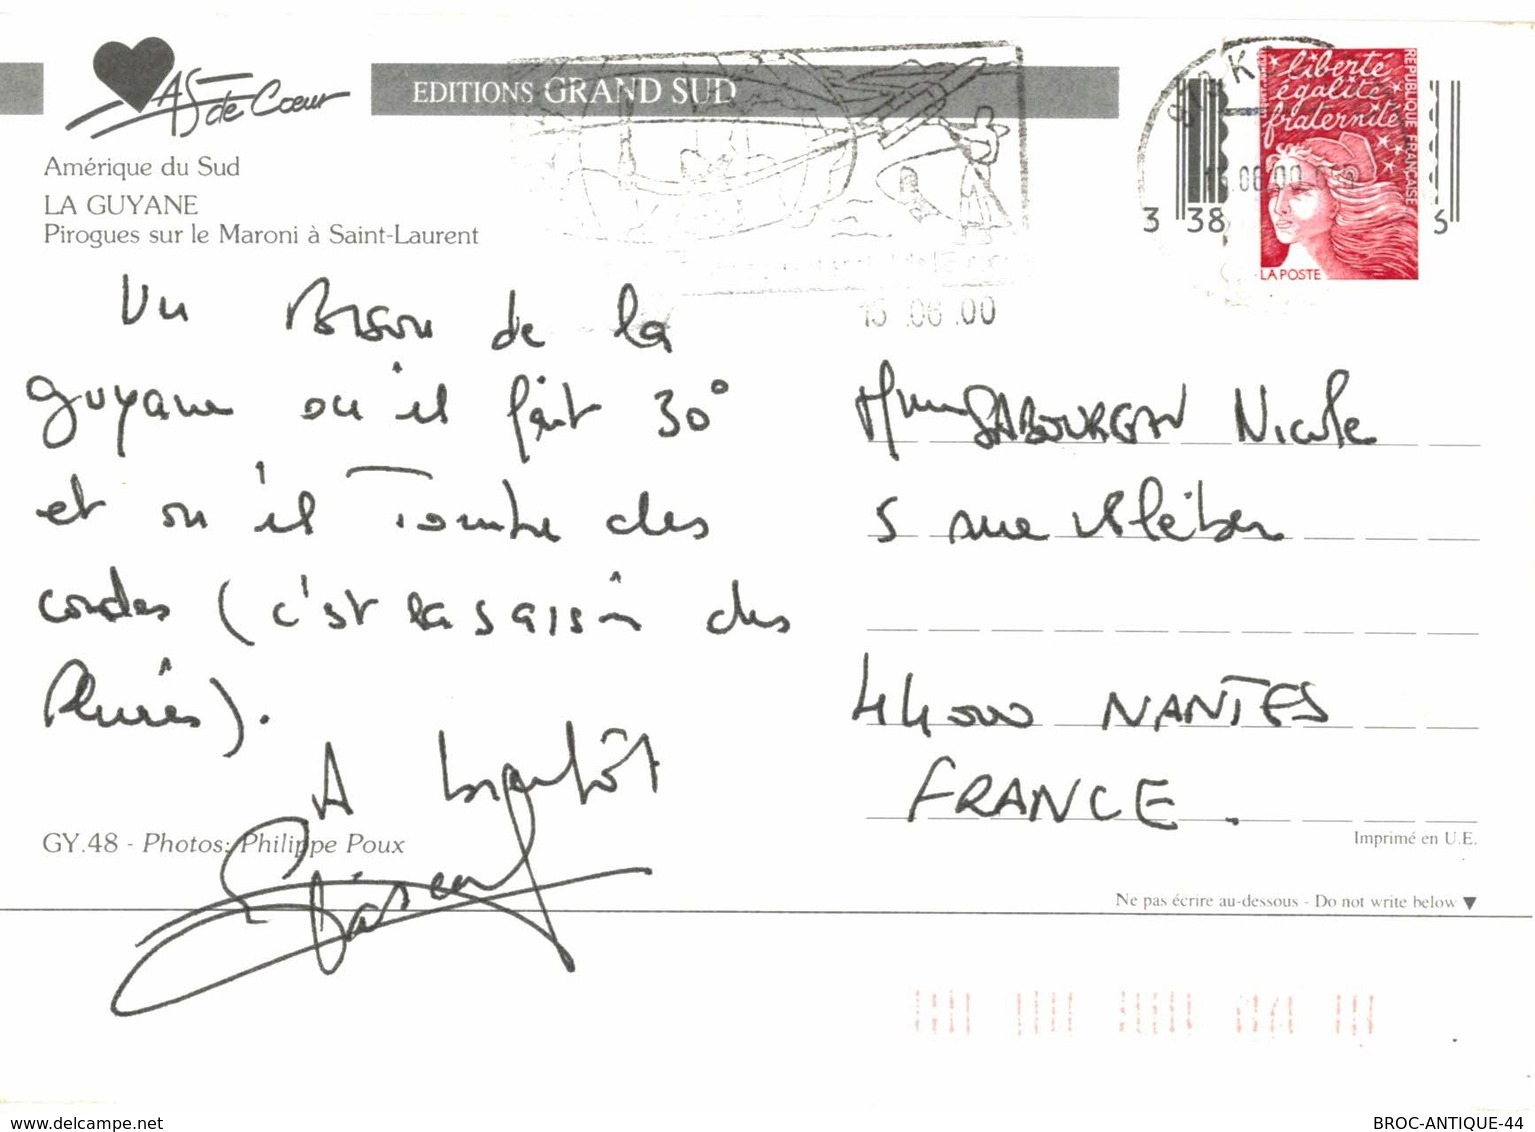 As de Cœur
EDITIONS GRAND SUD
Amérique du Sud
LA GUYANE
Pirogues sur le Maroni à Saint-Laurent
liberté
égalité
fraternité
REPUBLIQUE FRANÇAISE
LA POSTE
3 38 5
.06.00
Un de la
guyane où il fait 30°
et où il tombe des
cordes (c'est la saison des
pluies).
A bientôt
Mme Nicole
5 rue Kléber
44000 NANTES
FRANCE.
GY.48 - Photos: Philippe Poux
Imprimé en U.E.
Ne pas écrire au-dessous - Do not write below ▼
www.delcampe.net
BROC-ANTIQUE-44